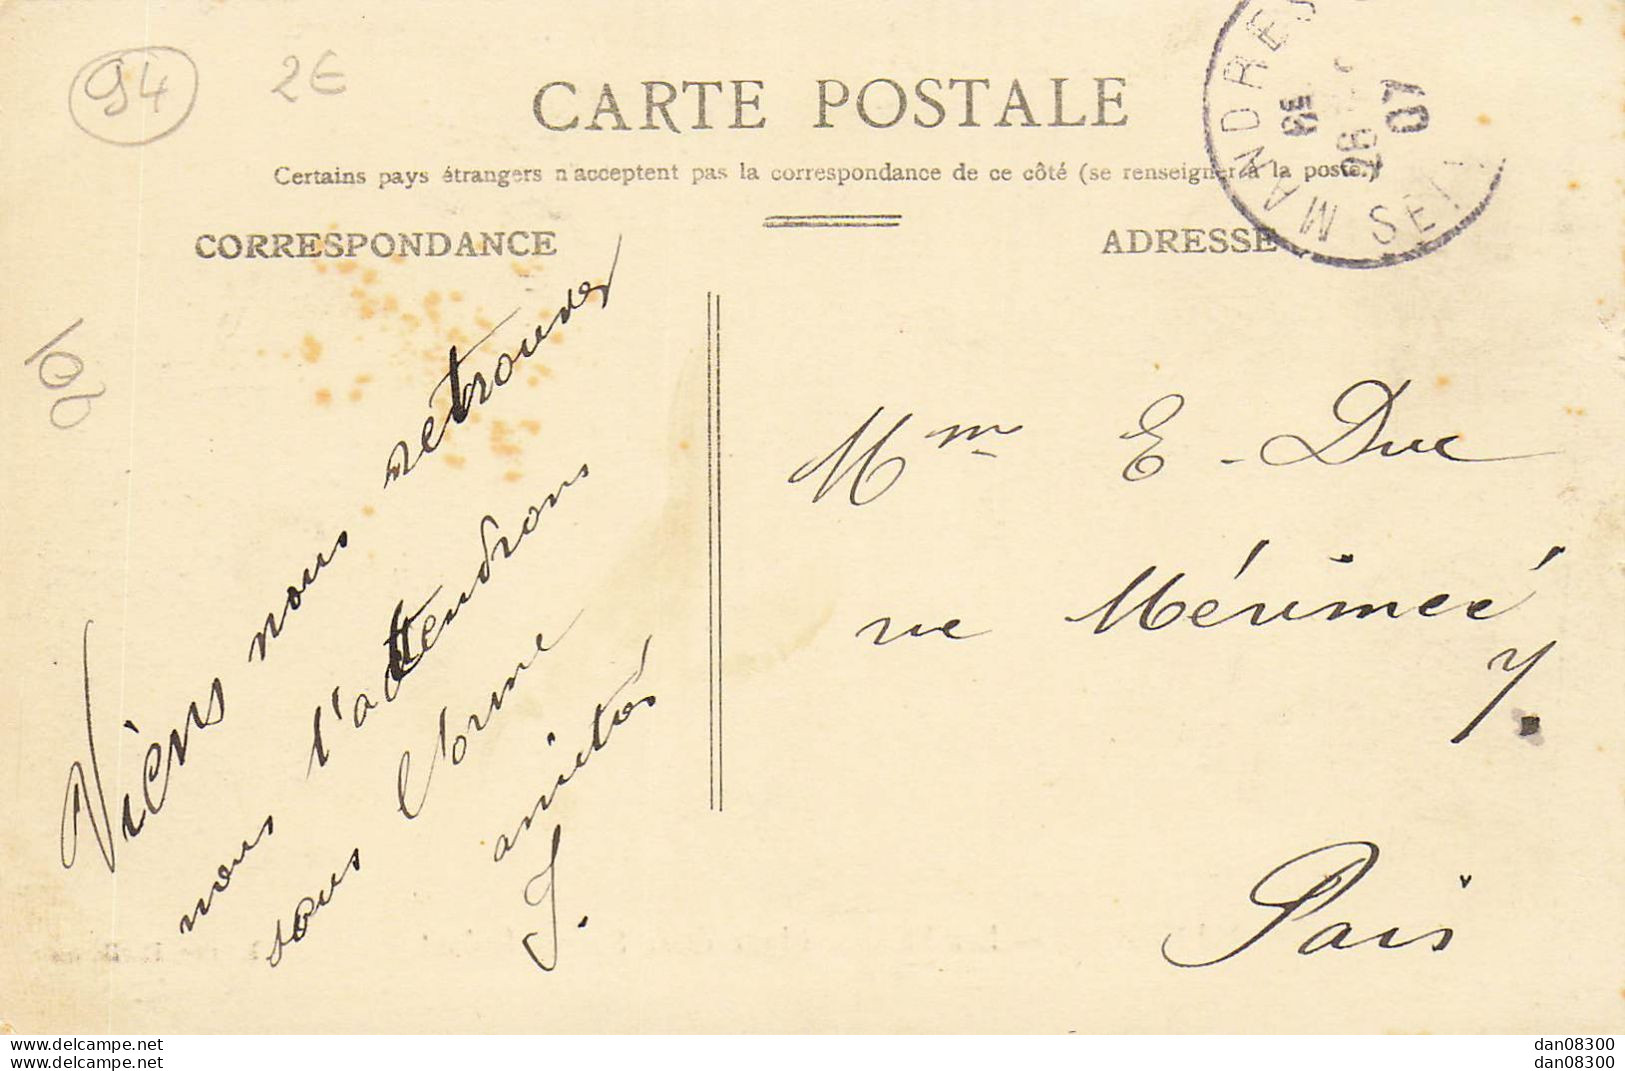 94
2€
CARTE POSTALE
Certains pays étrangers n'acceptent pas la correspondance de ce côté (se renseigner à la poste.)
CORRESPONDANCE
ADRESSE
MANDRES
SEI
26
07
Viens nous retrouver
nous t'attendrons
sous l'orme
amitiés
J.
Mme E. Duc
rue Mérimée
7.
Paris
dan08300
dan08300
www.delcampe.net
www.delcampe.net